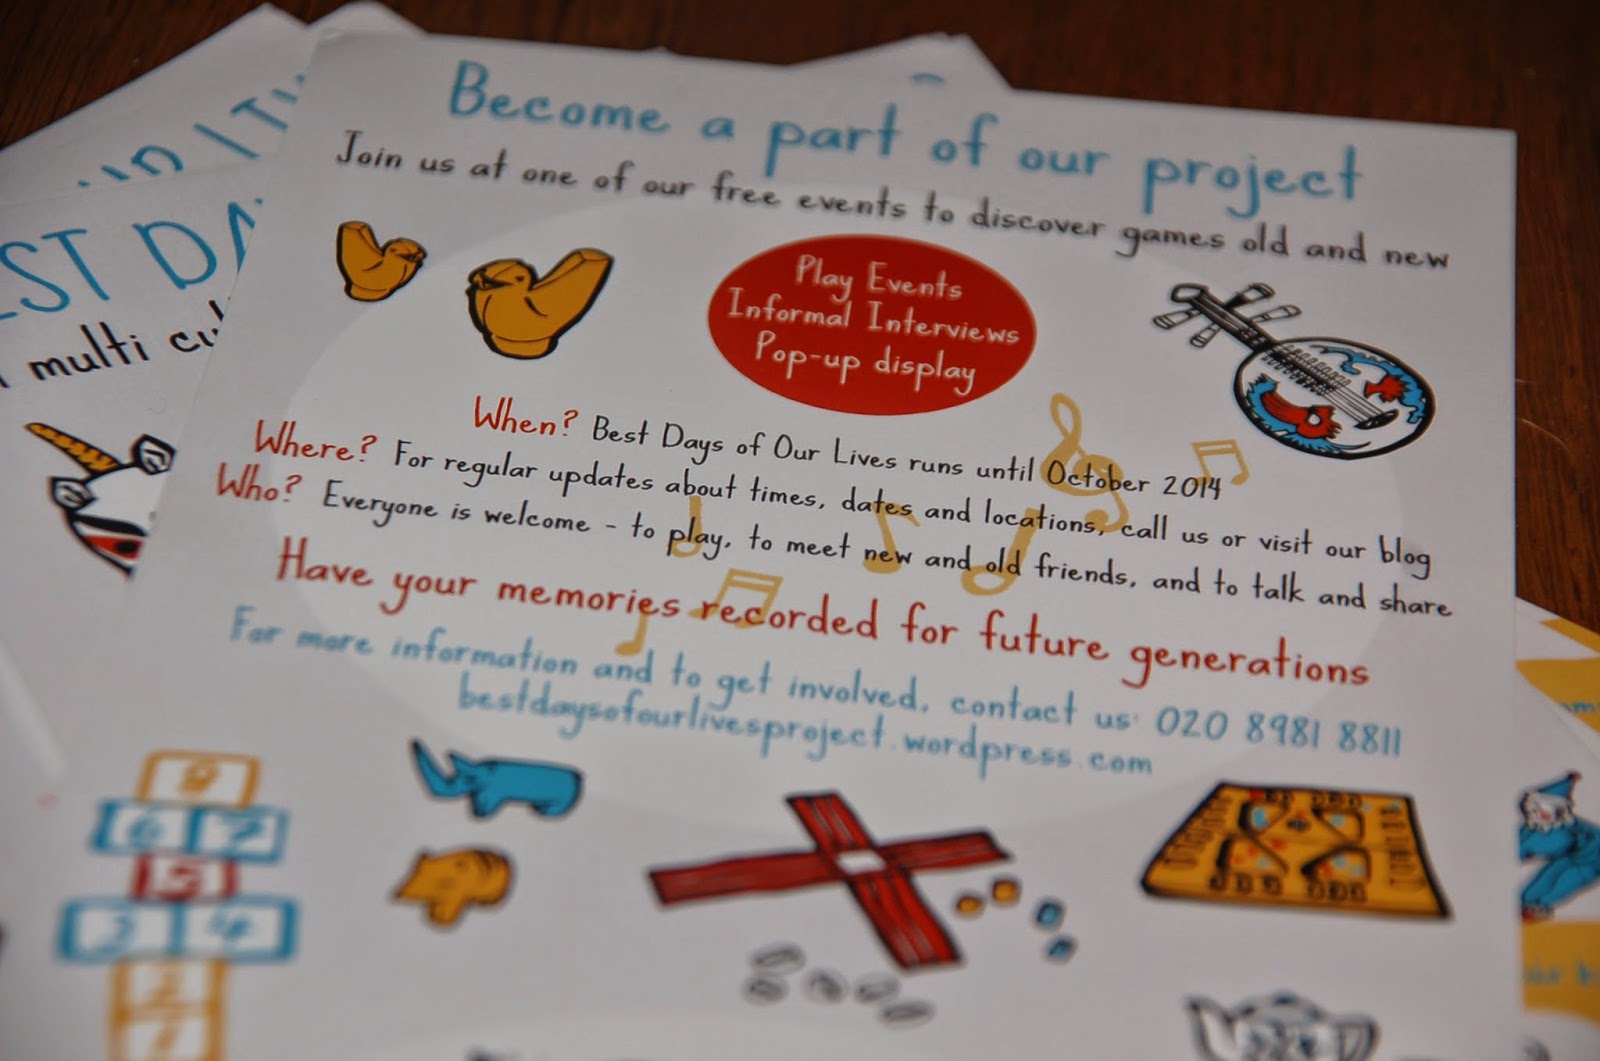 Become a part of our project
Join us at one of our free events to discover games old and new
Play Events
Informal Interviews
Pop-up display
When? Best Days of Our Lives runs until October 2014
Where? For regular updates about times, dates and locations, call us or visit our blog
Who? Everyone is welcome - to play, to meet new and old friends, and to talk and share
Have your memories recorded for future generations
For more information and to get involved, contact us: 020 8981 8811
bestdaysofourlivesproject.wordpress.com
multi
6 7
5
2 4